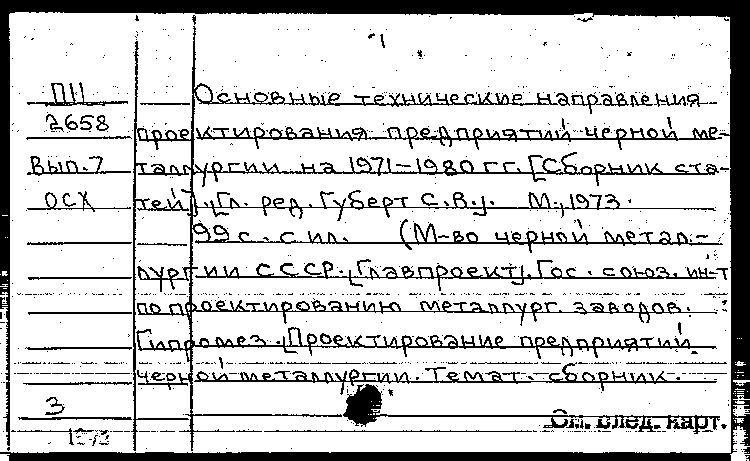 П11
2658
Вып.7
ОСХ
Основные технические направления
проектирования предприятий черной ме-
таллургии на 1971-1980 гг. [Сборник ста-
тей]. [Гл. ред. Губерт С.В.]. М., 1973.
99 с. с ил. (М-во черной метал-
лургии СССР. [Главпроект]. Гос. союз. ин-т
по проектированию металлург. заводов.
Гипромез. [Проектирование предприятий
черной металлургии. Темат. сборник.
3
См. след. карт.